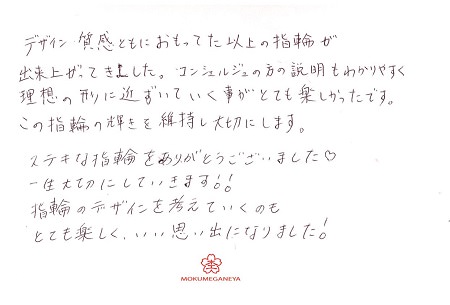 デザイン・質感ともにおもってた以上の指輪が
出来上がってきました。コンシェルジュの方の説明もわかりやすく
理想の形に近ずいていく事がとても楽しかったです。
この指輪の輝きを維持し大切にします。
ステキな指輪をありがとうございました♡
一生大切にしていきます!!
指輪のデザインを考えていくのも
とても楽しく、いい思い出になりました!
MOKUMEGANEYA